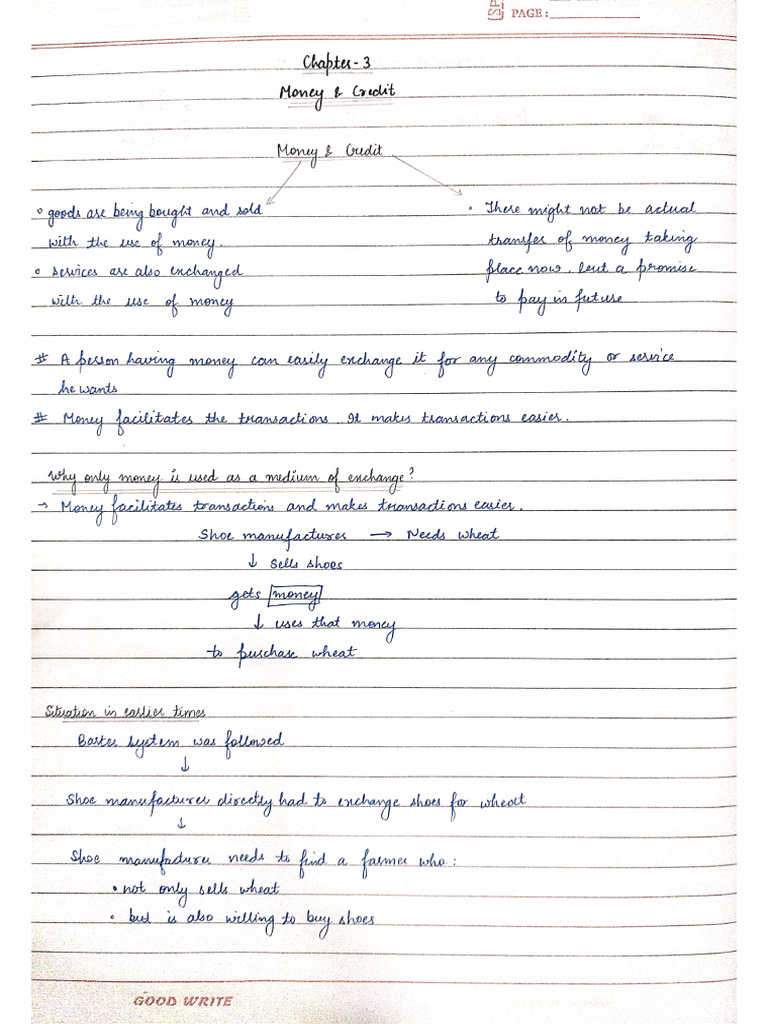 PAGE:
Chapter-3
Money & Credit
Money & Credit
• goods are being bought and sold
with the use of money.
• services are also exchanged
with the use of money
• There might not be actual
transfer of money taking
place now. but a promise
to pay in future
# A person having money can easily exchange it for any commodity or service
he wants
# Money facilitates the transactions. It makes transactions easier.
Why only money is used as a medium of exchange?
→ Money facilitates transactions and makes transactions easier.
Shoe manufacturer → Needs wheat
↓ sells shoes
gets money
↓ uses that money
to purchase wheat
Situation in earlier times
Barter system was followed
↓
Shoe manufacturer directly had to exchange shoes for wheat
↓
Shoe manufacturer needs to find a farmer who:
• not only sells wheat
• but is also willing to buy shoes
GOOD WRITE